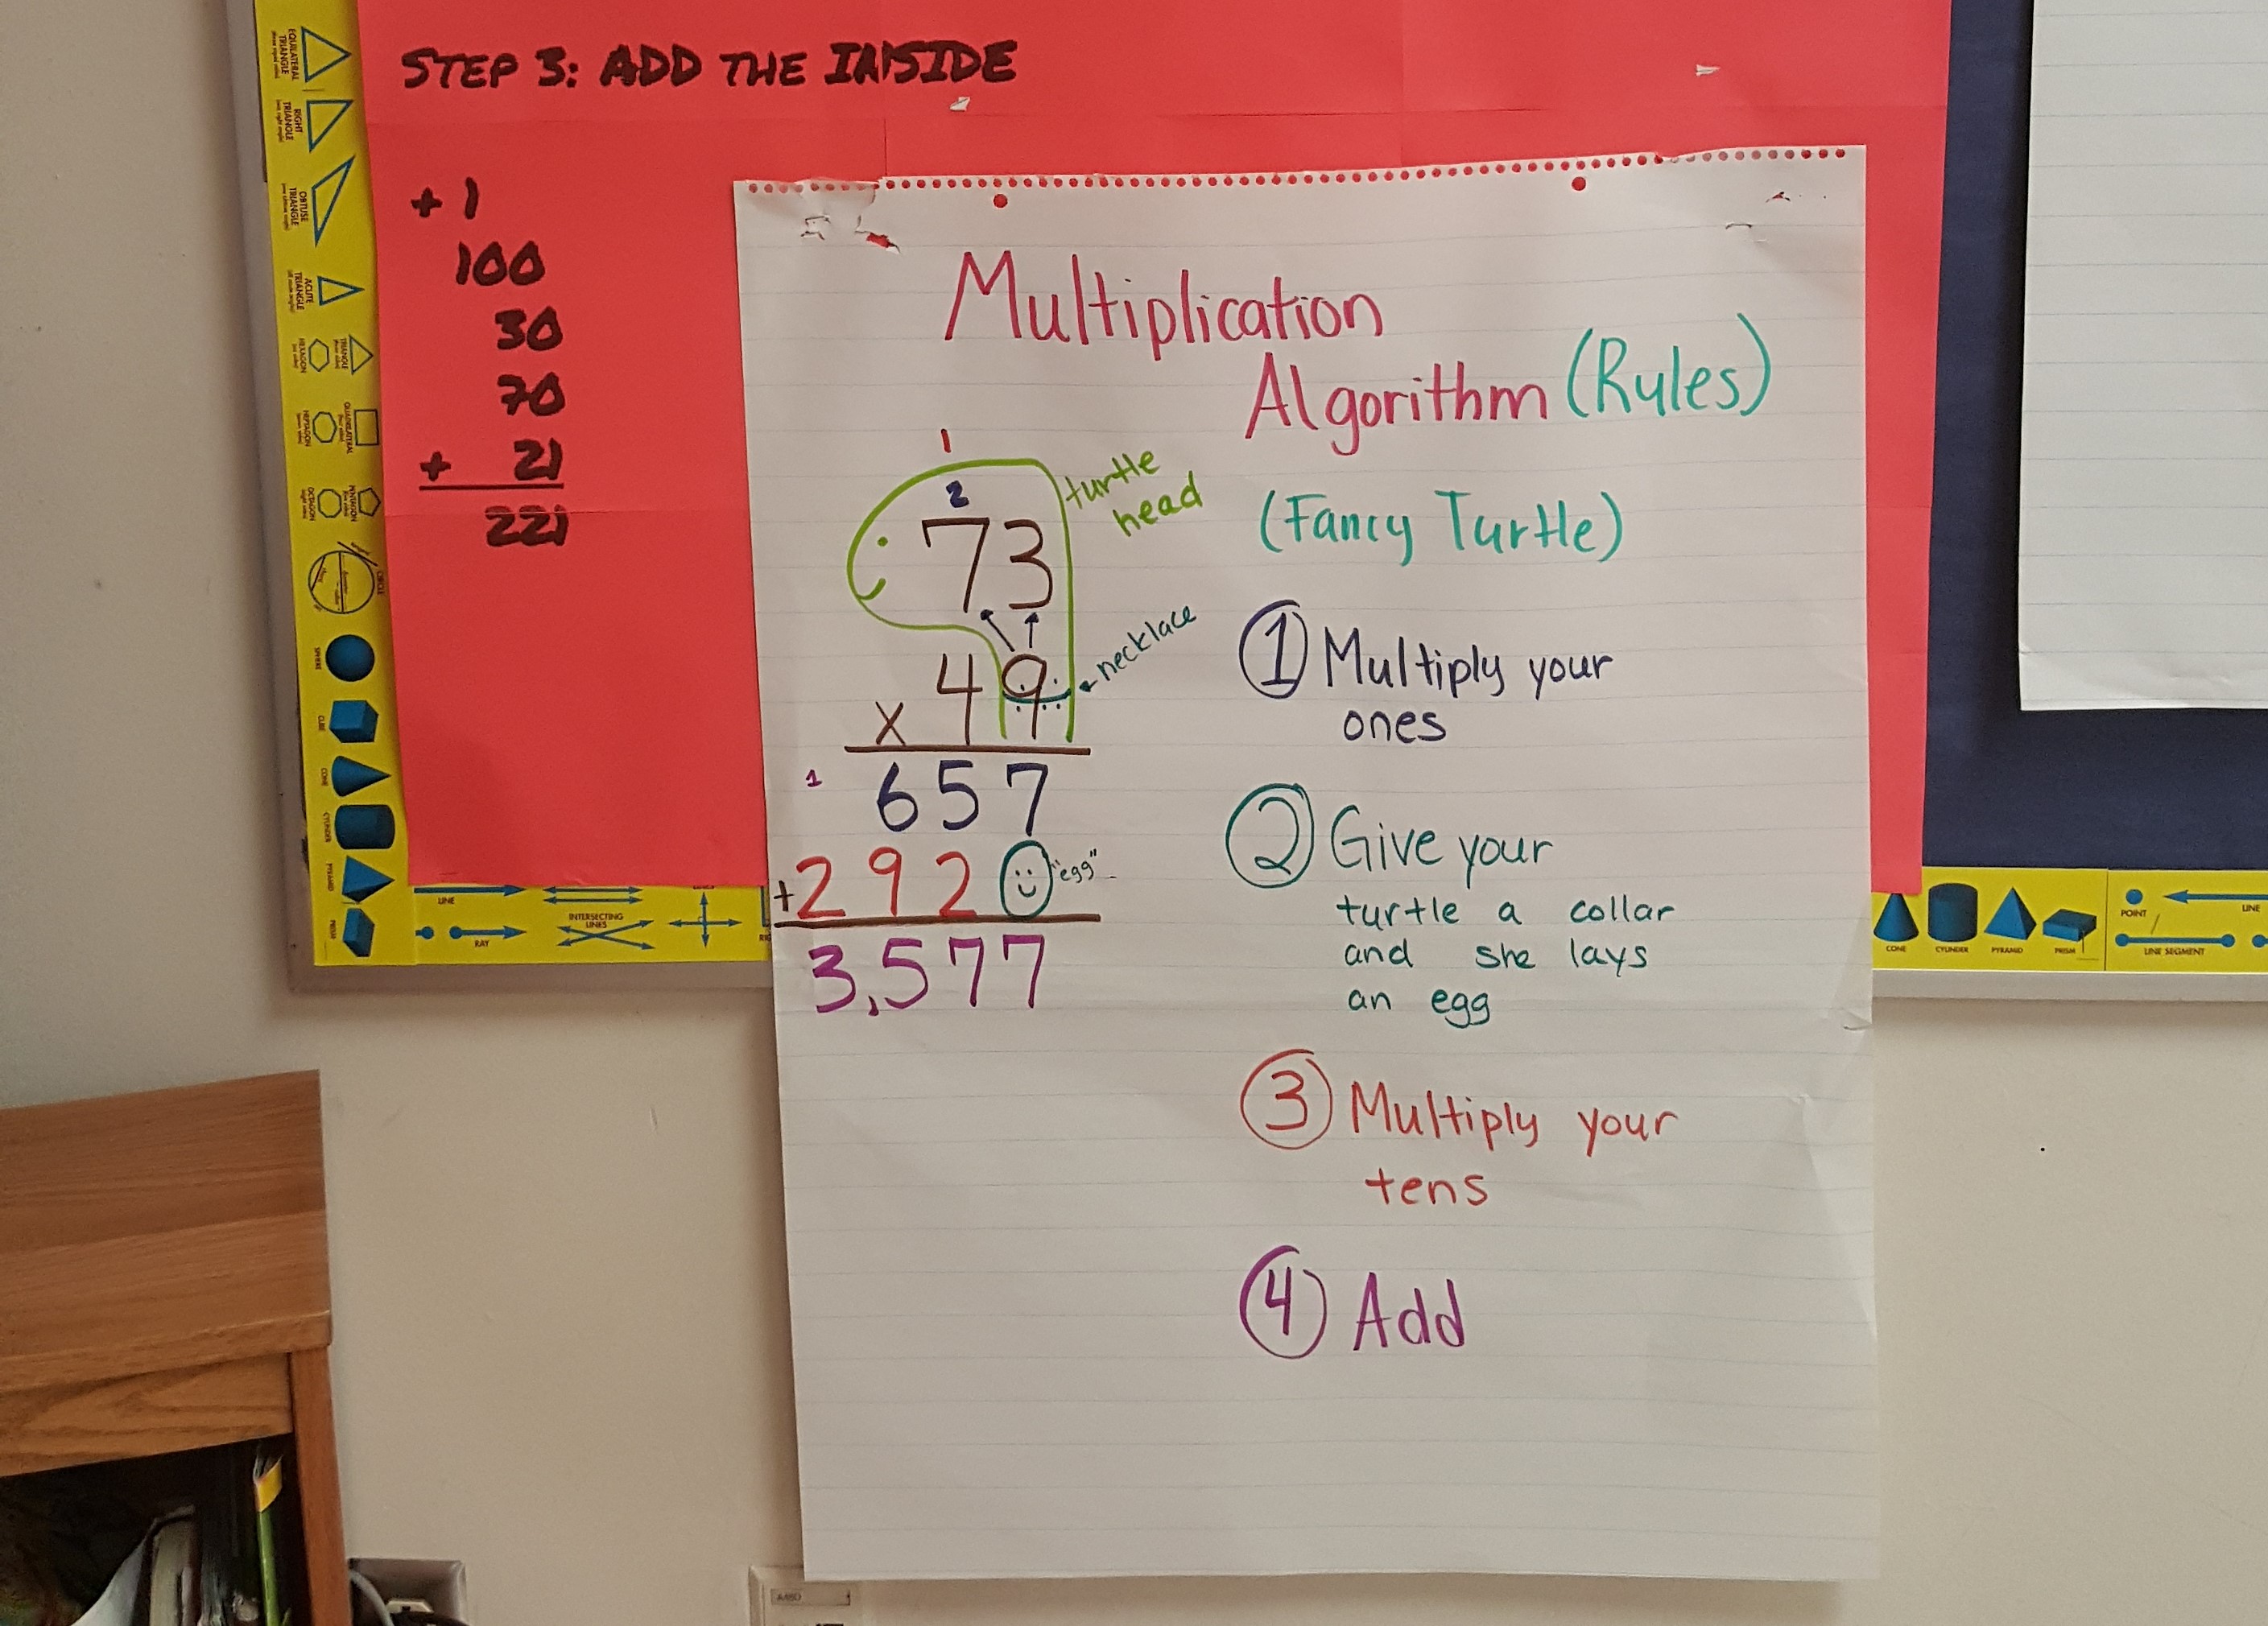 STEP 3: ADD THE INSIDE
+ 1
100
30
70
+ 21
221
Multiplication
Algorithm (Rules)
(Fancy Turtle)
1
turtle
head
2
73
necklace
x 49
1 657
+2920 "egg"
3,577
① Multiply your
ones
② Give your
turtle a collar
and she lays
an egg
③ Multiply your
tens
④ Add
EQUILATERAL
TRIANGLE
RIGHT
TRIANGLE
OBTUSE
TRIANGLE
ACUTE
TRIANGLE
TRIANGLE
HEXAGON
QUADRILATERAL
HEPTAGON
PENTAGON
OCTAGON
CIRCLE
SPHERE
CUBE
CONE
CYLINDER
PYRAMID
PRISM
LINE
RAY
INTERSECTING
LINES
CONE
CYLINDER
PYRAMID
PRISM
POINT
LINE
LINE SEGMENT